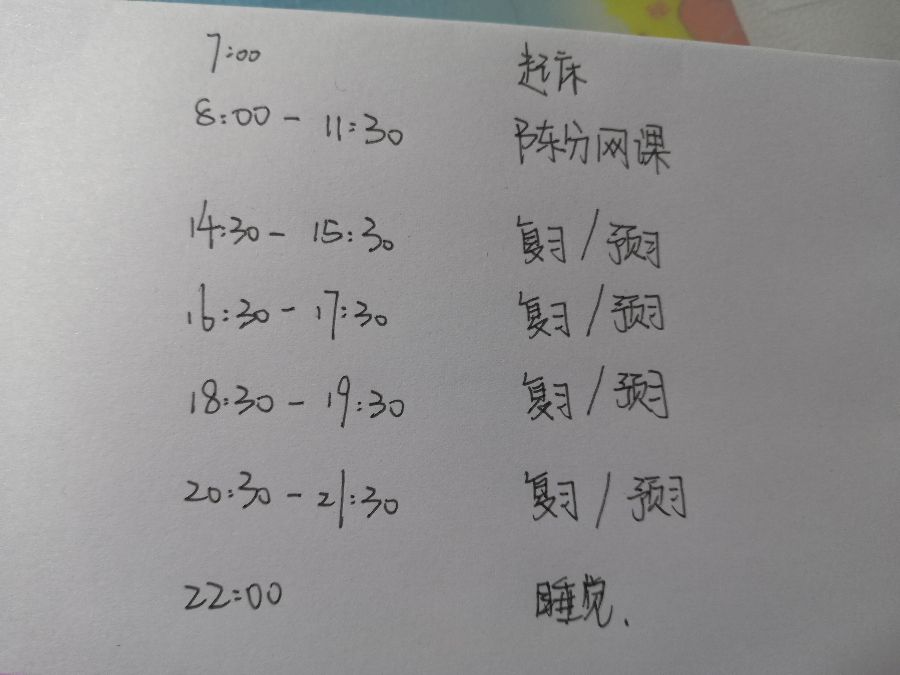 7:00 起床
8:00 - 11:30 陈分网课
14:30 - 15:30 复习 / 预习
16:30 - 17:30 复习 / 预习
18:30 - 19:30 复习 / 预习
20:30 - 21:30 复习 / 预习
22:00 睡觉.